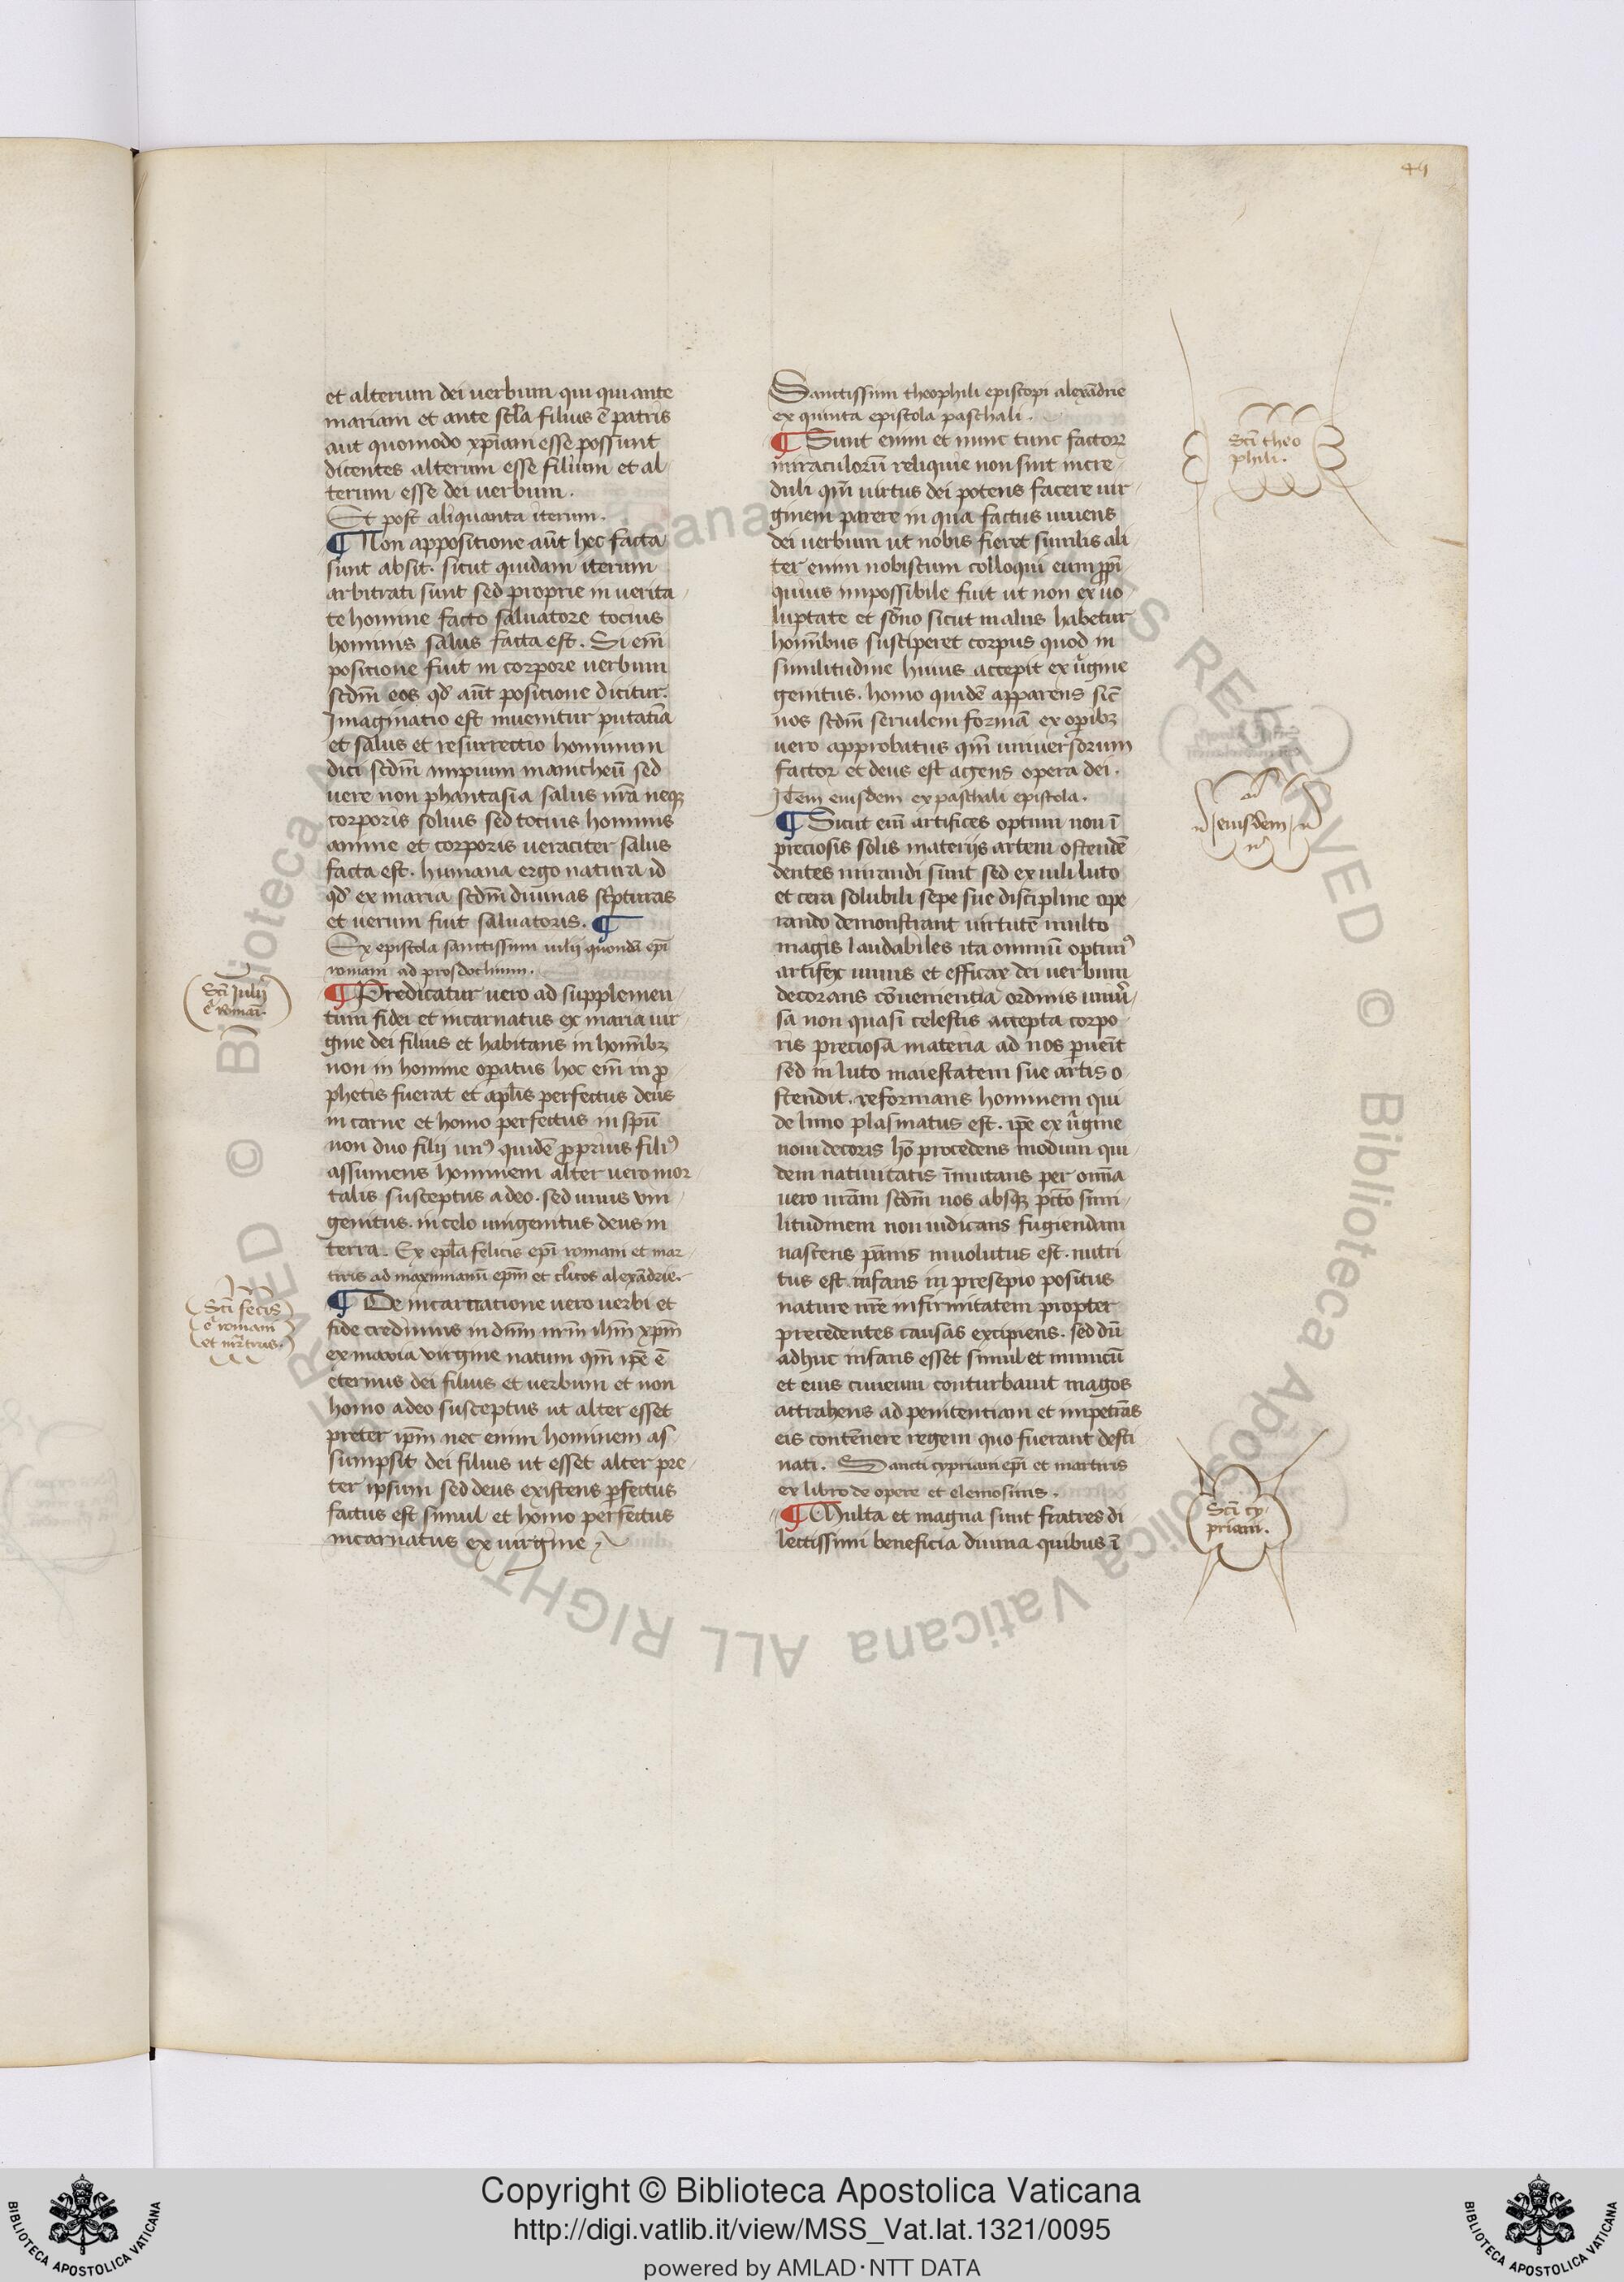 44
et alterum dei uerbum qui qui ante
mariam et ante scl̄a filius ē patris
aut quomodo xp̄iani esse possunt
dicentes alterum esse filium et al-
terum esse dei uerbum.
Et post aliquanta iterum.
¶ Non appositione aūt hec facta
sunt absit. sicut quidam iterum
arbitrati sunt sed proprie in uerita-
te homine facto saluatore tocius
hominis salus facta est. Si em̄
positione fuit in corpore uerbum
scdm̄ eos qd̄ aūt positione dicitur.
Imaginatio est inuenitur putatīa
et salus et resurrectio hominum
dici scdm̄ impium manicheū sed
uere non phantasia salus nr̄a neqꝫ
corporis solius sed tocius hominis
anime et corporis ueraciter salus
facta est. humana ergo natura id
qd̄ ex maria scdm̄ diuinas sc̄pturas
et uerum fuit saluatoris. ¶
Ex epistola sanctissimi iulij quondā ep̄i
romani ad prosdochium.
Sci Iulij
ē romāi.
¶ Predicatur uero ad supplemen-
tum fidei et incarnatus ex maria uir-
gine dei filius et habitans in homībꝫ
non in homine oꝑatus hoc em̄ in ꝓ-
phetis fuerat et apl̄is perfectus deus
in carne et homo perfectus in spū
non duo filij unꝰ quidē ꝓprius filiꝰ
assumens hominem alter uero mor-
talis susceptus a deo. sed unus vni-
genitus. in celo unigenitus deus in
terra. Ex epl̄a felicis ep̄i romani et mar-
tiris ad maximianū epm̄ et clicos alexādrie.
Sci fecis
ē romani
et mr̄tiris.
¶ De incarnatione uero uerbi et
fide credimus in dn̄m nr̄m ih̄m xp̄m
ex maria virgine natum qm̄ ip̄e ē
eternus dei filius et uerbum et non
homo a deo susceptus ut alter esset
preter ip̄m nec enim hominem as-
sumpsit dei filius ut esset alter pre-
ter ipsum sed deus existens ꝑfectus
factus est simul et homo perfectus
incarnatus ex uirgine
Sanctissimi theophili episcopi alexādrie
ex quinta epistola paschali.
Sci theo
phili.
¶ Sunt enim et nunc tunc factoꝝ
miraculorū reliquie non sint incre-
duli qm̄ uirtus dei potens facere uir-
ginem parere in qua factus uiuens
dei uerbum ut nobis fieret similis ali-
ter enim nobiscum colloqui eum ꝓpi
quius impossibile fuit ut non ex uo-
luptate et sōno sicut in alus habetur
homībus susciperet corpus quod in
similitudine huius accepit ex uʼgine
genitus. homo quidē apparens sic̄
nos scdm̄ seruilem formā ex opibꝫ
uero approbatus qm̄ uniuersorum
factor et deus est agens opera dei.
Item eiusdem ex paschali epistola.
eiusdem
¶ Sicut em̄ artifices optimi non ī
preciosis solis materijs artem ostendē
dentes mirandi sunt sed ex uili luto
et cera solubili sepe sue discipline ope-
rando demonstrant uirtutē multo
magis laudabiles ita omniū optimꝰ
artifex uiuus et efficax dei uerbum
decorans cōuenientia ordinis uniuʼ-
sa non quasi celestis accepta corpo-
ris preciosa materia ad nos ꝑuenit
sed in luto maiestatem sue artis o-
stendit. reformans hominem qui
de limo plasmatus est. ip̄e ex uʼgine
noui decoris hō procedens modum qui-
dem natiuitatis īmutans per omīa
uero nr̄am scdm̄ nos absqꝫ pctō simi-
litudinem non iudicans fugiendam
nascens pānis inuolutus est. nutri-
tus est. infans in presepio positus
nature nr̄e infirmitatem propter
precedentes causas excipiens. sed dū
adhuc infans esset simul et inimicū
et eius cuneum conturbauit magos
attrahens ad penitentiam et impetrās
eis contēnere regem quo fuerant desti
nati. Sancti cypriani ep̄i et martiris
ex libro de opere et elemosinis.
Sci cy-
priani.
¶ Multa et magna sunt fratres di-
lectissimi beneficia diuina quibus ī
Copyright © Biblioteca Apostolica Vaticana
http://digi.vatlib.it/view/MSS_Vat.lat.1321/0095
powered by AMLAD·NTT DATA
BIBLIOTECA APOSTOLICA VATICANA
BIBLIOTECA APOSTOLICA VATICANA
© Biblioteca Apostolica Vaticana ALL RIGHTS RESERVED